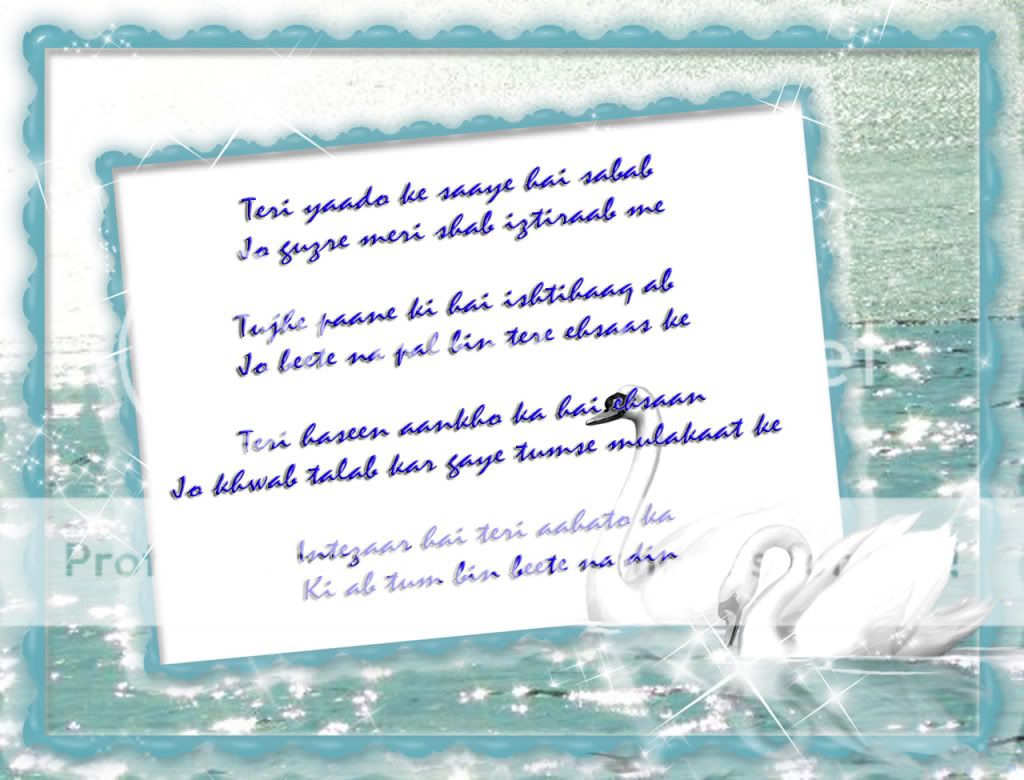 Teri yaado ke saaye hai sabab
Jo guzre meri shab iztiraab me
Tujhe paane ki hai ishtihaaq ab
Jo beete na pal bin tere ehsaas ke
Teri haseen aankho ka hai ehsaan
Jo khwab talab kar gaye tumse mulakaat ke
Intezaar hai teri aahato ka
Ki ab tum bin beete na din